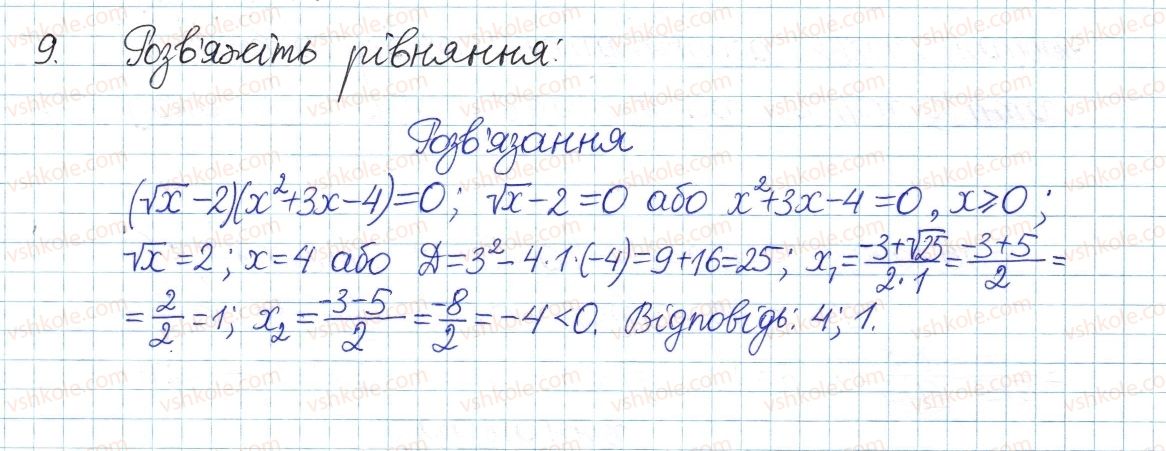 9. Розв'яжіть рівняння:
Розв'язання
(√x-2)(x²+3x-4)=0; √x-2=0 або x²+3x-4=0, x⩾0;
√x=2; x=4 або Д=3²-4·1·(-4)=9+16=25; x₁=(-3+√25)/(2·1)=(-3+5)/2=
=2/2=1; x₂=(-3-5)/2=-8/2=-4<0. Відповідь: 4; 1.
vshkole.com